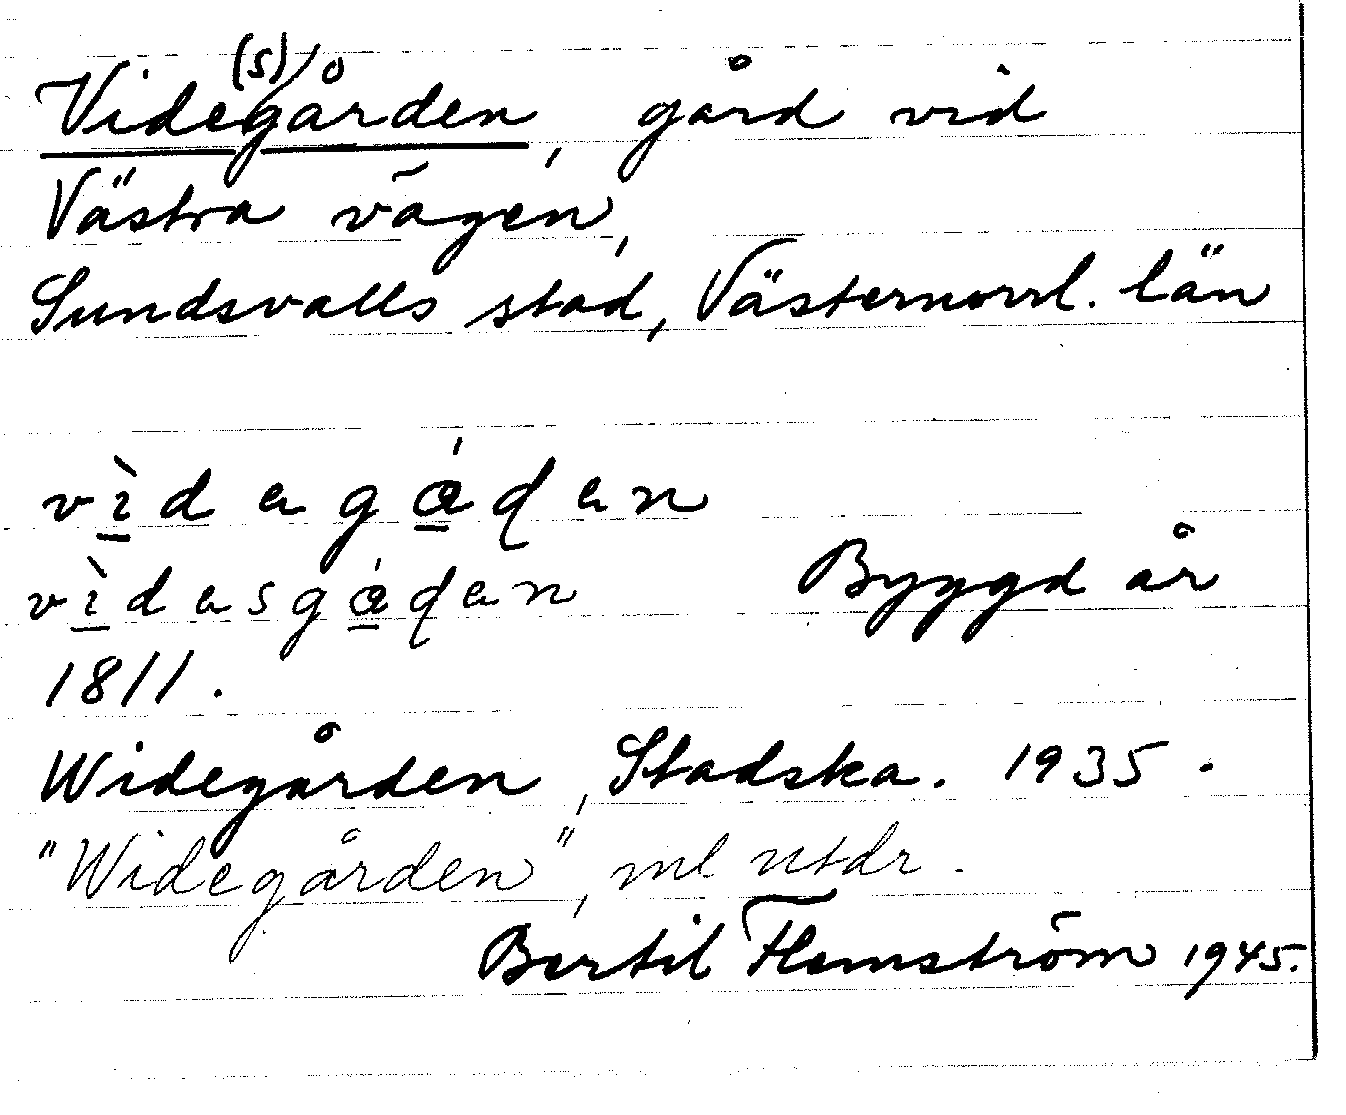 Vide(s)gården, gård vid
Västra vägen,
Sundsvalls stad, Västernorrl. län
vìdegǻɖen
vìdesgǻɖen Byggd år
1811.
Widegården, Stadska. 1935.
"Widegården", ml utdr.
Bertil Flemström 1945.